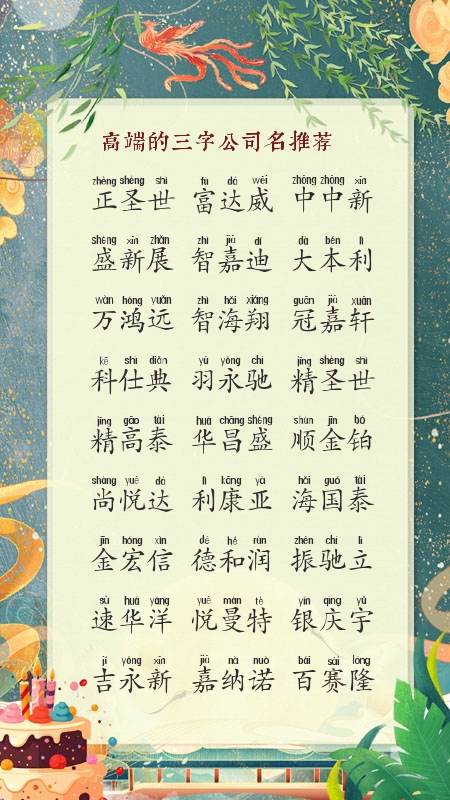 高端的三字公司名推荐
zhèng shèng shì fù dá wēi zhōng zhōng xīn
正圣世 富达威 中中新
shèng xīn zhǎn zhì jiā dí dà běn lì
盛新展 智嘉迪 大本利
wàn hóng yuǎn zhì hǎi xiáng guān jiā xuān
万鸿远 智海翔 冠嘉轩
kē shì diǎn yǔ yǒng chí jīng shèng shì
科仕典 羽永驰 精圣世
jīng gāo tài huá chāng shèng shùn jīn bó
精高泰 华昌盛 顺金铂
shàng yuè dá lì kāng yà hǎi guó tài
尚悦达 利康亚 海国泰
jīn hóng xìn dé hé rùn zhèn chí lì
金宏信 德和润 振驰立
sù huá yáng yuè màn tè yín qìng yǔ
速华洋 悦曼特 银庆宇
jí yǒng xīn jiā nà nuò bǎi sài lóng
吉永新 嘉纳诺 百赛隆